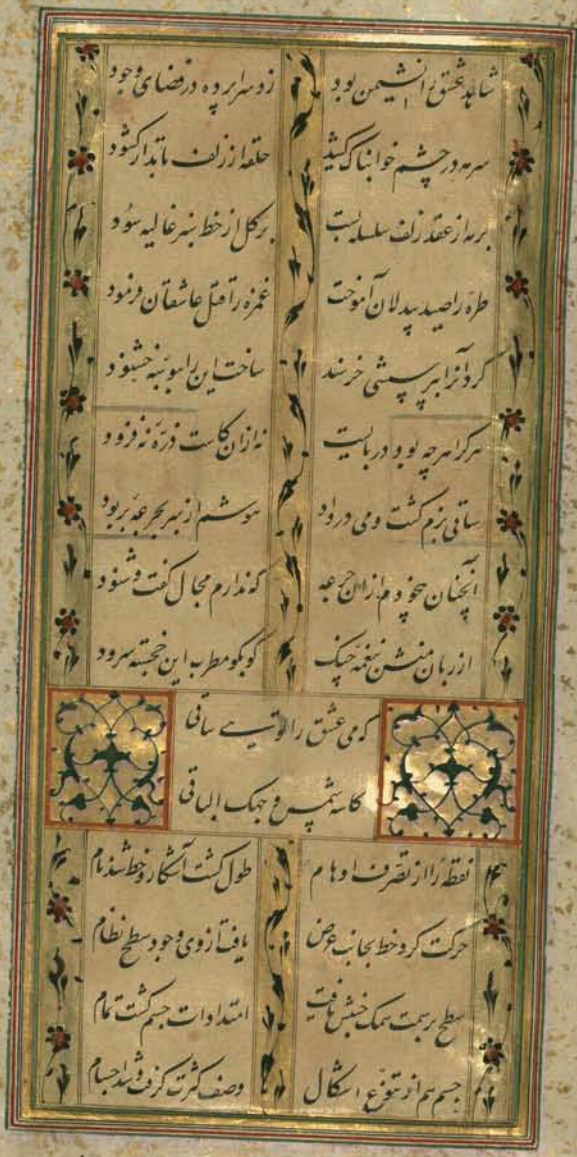 شاهد عشق را نشیمن بود زد سراپرده در فضای وجود
سرمه در چشم خوابناک کشید حلقه از زلف تابدار گشود
بر مه از عقد زلف سلسله بست بر گل از خط سبز غالیه سود
طره را صید بیدلان آموخت غمزه را قتل عاشقان فرمود
کرد آنرا بپرسشی خرسند ساخت این را ببوسه خشنود
هر کرا هر چه بود در بایست نه ازان کاست ذره نه فزود
ساقی بزم گشت و می در داد هوشم از سر بجرعه بربود
آنچنان بیخودم ازان جرعه که ندارم مجال گفت و شنود
از زبان منش بنغمه چنگ گو بگو مطرب این خجسته سرود
که می عشق را تویی ساقی
کاسه شمس وجهک الباقی
نقطه را از تصرف اوهام طول گشت آشکار و خط شد نام
حرکت کرد خط بجانب عرض یافت ازوی وجود سطح نظام
سطح بر سمت سمک جنبش یافت امتدادات جسم گشت تمام
جسم هم از تنوع اشکال وصف کثرت گرفت و شد اجسام